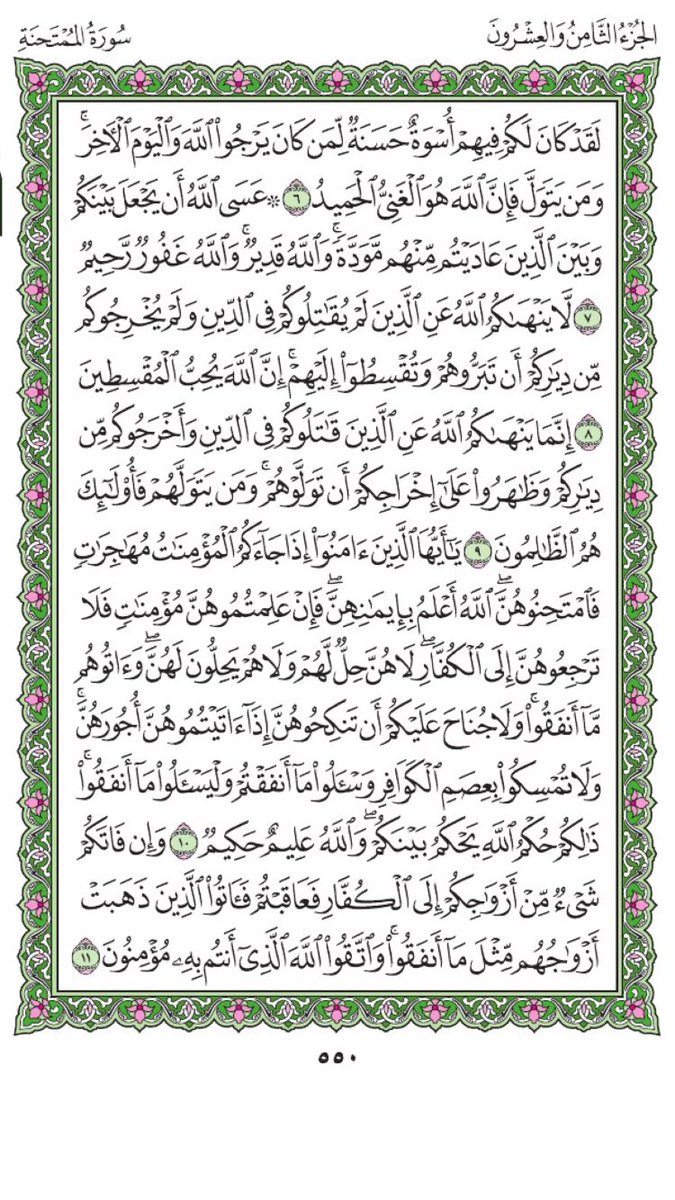 الجُزْءُ الثَّامِنُ وَالعِشْرُونَ
سُورَةُ المُمْتَحنَةِ
لَقَدْ كَانَ لَكُمْ فِيهِمْ أُسْوَةٌ حَسَنَةٌ لِّمَن كَانَ يَرْجُواْ ٱللَّهَ وَٱلْيَوْمَ ٱلْأٓخِرَۚ
وَمَن يَتَوَلَّ فَإِنَّ ٱللَّهَ هُوَ ٱلْغَنِيُّ ٱلْحَمِيدُ ٦ ۞ عَسَى ٱللَّهُ أَن يَجْعَلَ بَيْنَكُمْ
وَبَيْنَ ٱلَّذِينَ عَادَيْتُم مِّنْهُم مَّوَدَّةًۚ وَٱللَّهُ قَدِيرٌۚ وَٱللَّهُ غَفُورٌ رَّحِيمٌ
٧ لَّا يَنْهَىٰكُمُ ٱللَّهُ عَنِ ٱلَّذِينَ لَمْ يُقَٰتِلُوكُمْ فِي ٱلدِّينِ وَلَمْ يُخْرِجُوكُم
مِّن دِيَٰرِكُمْ أَن تَبَرُّوهُمْ وَتُقْسِطُوٓاْ إِلَيْهِمْۚ إِنَّ ٱللَّهَ يُحِبُّ ٱلْمُقْسِطِينَ
٨ إِنَّمَا يَنْهَىٰكُمُ ٱللَّهُ عَنِ ٱلَّذِينَ قَٰتَلُوكُمْ فِي ٱلدِّينِ وَأَخْرَجُوكُم مِّن
دِيَٰرِكُمْ وَظَٰهَرُواْ عَلَىٰٓ إِخْرَاجِكُمْ أَن تَوَلَّوْهُمْۚ وَمَن يَتَوَلَّهُمْ فَأُوْلَٰٓئِكَ
هُمُ ٱلظَّٰلِمُونَ ٩ يَٰٓأَيُّهَا ٱلَّذِينَ ءَامَنُوٓاْ إِذَا جَآءَكُمُ ٱلْمُؤْمِنَٰتُ مُهَٰجِرَٰتٍ
فَٱمْتَحِنُوهُنَّۖ ٱللَّهُ أَعْلَمُ بِإِيمَٰنِهِنَّۖ فَإِنْ عَلِمْتُمُوهُنَّ مُؤْمِنَٰتٍ فَلَا
تَرْجِعُوهُنَّ إِلَى ٱلْكُفَّارِۖ لَا هُنَّ حِلٌّ لَّهُمْ وَلَا هُمْ يَحِلُّونَ لَهُنَّۖ وَءَاتُوهُم
مَّآ أَنفَقُواْۚ وَلَا جُنَاحَ عَلَيْكُمْ أَن تَنكِحُوهُنَّ إِذَآ ءَاتَيْتُمُوهُنَّ أُجُورَهُنَّۚ
وَلَا تُمْسِكُواْ بِعِصَمِ ٱلْكَوَافِرِ وَسْـَٔلُواْ مَآ أَنفَقْتُمْ وَلْيَسْـَٔلُواْ مَآ أَنفَقُواْۚ
ذَٰلِكُمْ حُكْمُ ٱللَّهِ يَحْكُمُ بَيْنَكُمْۖ وَٱللَّهُ عَلِيمٌ حَكِيمٌ ١٠ وَإِن فَاتَكُمْ
شَيْءٌ مِّنْ أَزْوَٰجِكُمْ إِلَى ٱلْكُفَّارِ فَعَاقَبْتُمْ فَـَٔاتُواْ ٱلَّذِينَ ذَهَبَتْ
أَزْوَٰجُهُم مِّثْلَ مَآ أَنفَقُواْۚ وَٱتَّقُواْ ٱللَّهَ ٱلَّذِيٓ أَنتُم بِهِۦ مُؤْمِنُونَ ١١
٥٥٠